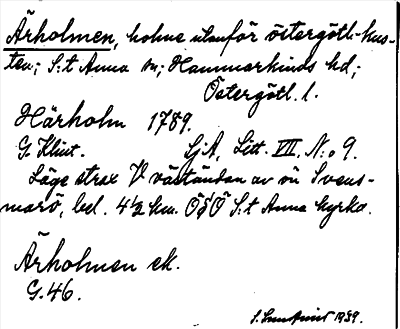 Ärholmen, holme utanför östergötl. kus-
ten; S:t Anna sn; Hammarkinds hd;
Östergötl. l.
Härholm 1789.
G. Klint. SjA, Litt. VII. N:o 9.
Läge strax V väständan av ön Svens-
marö, bel. 4½ km. ÖSÖ S:t Anna kyrka.
Ärholmen ek.
G. 46.
1939.